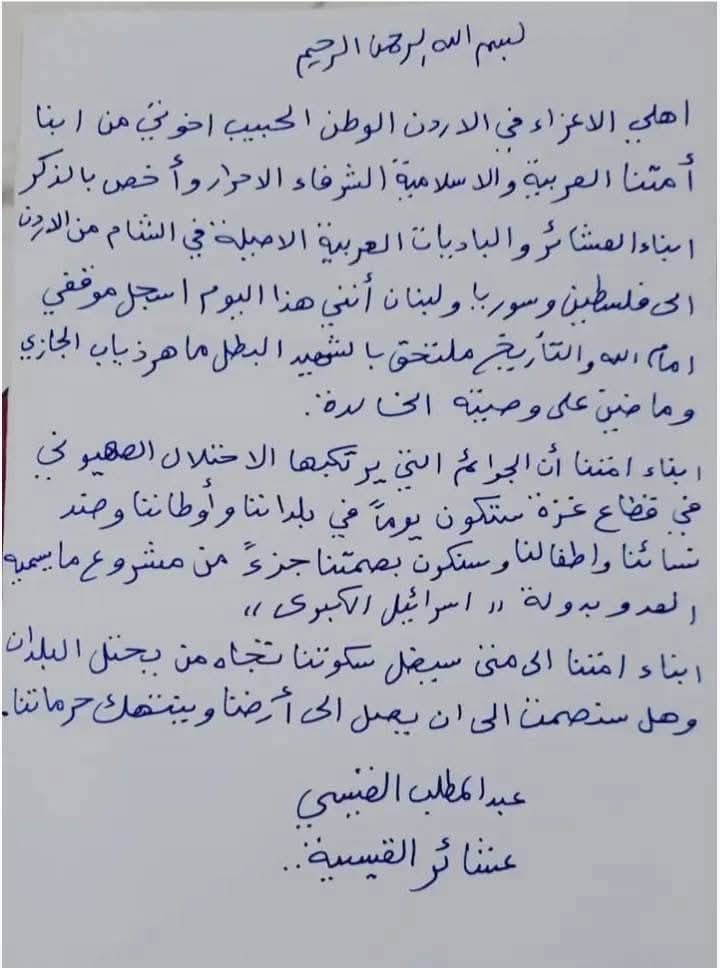 بسم الله الرحمن الرحيم
اهلي الاعزاء في الاردن الوطن الحبيب اخوتي من ابنا
أمتنا العربية والاسلامية الشرفاء الاحرار وأخص بالذكر
ابناء العشائر والباديات العربية الاصيلة في الشام من الاردن
الى فلسطين وسوريا ولبنان أنني هذا اليوم اسجل موقفي
امام الله والتأريخ ملتحق بالشهيد البطل ماهر ذياب الجازي
وماضين على وصيته الخالدة.
ابناء امتنا أن الجرائم التي يرتكبها الاحتلال الصهيوني
في قطاع غزة ستكون يوماً في بلداننا وأوطاننا وضد
نسائنا واطفالنا وسنكون بصمتنا جزءً من مشروع ما يسميه
العدو بدولة "اسرائيل الكبرى"
ابناء امتنا الى متى سيضل سكوتنا تجاه من يحتل البلدان
وهل سنصمت الى ان يصل الى أرضنا وينتهك حرماتنا.
عبدالمطلب القيسي
عشائر القيسية..